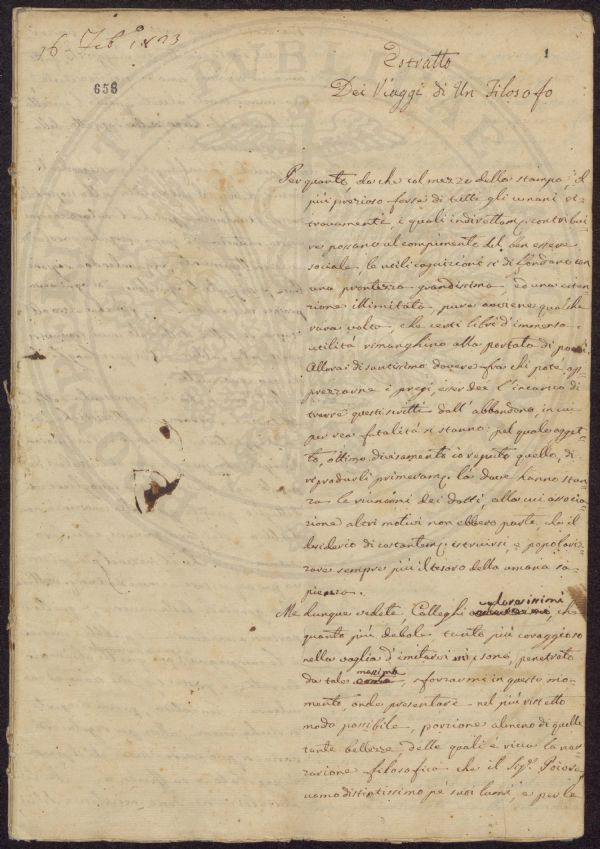 16 Feb 1823
1
658
Estratto
Dei Viaggi di Un Filosofo
Per quanto, da che col mezzo della stampa, il
più prezioso forse di tutti gli umani ri-
trovamenti i quali indirettam. contribui-
re possano al compimento del ben essere
sociale, le utili cognizioni si diffondano con
una prontezza grandissima, ed una esten-
zione illimitata, pure avviene qualche
rara volta, che certi libri d'immensa
utilità rimanghino alla portata di pochi.
Allora di santissimo dovere fra chi pote ap-
prezzarne i pregi esser dee l'incarico di
trarre questi scritti dall'abbandono, in cui
per rea fatalità si stanno: pel quale ogget-
to, ottimo divisamento io reputo quello, di
riprodurli primieram. là dove hanno stan-
za le riunioni dei dotti, alla cui associa-
zione altri motivi non ebbero parte, che il
desiderio di costantem. istruirsi, e popolariz-
zare sempre più il tesoro della umana sa-
pienza.
Me dunque vedete, Colleghi valorosissimi, che
quanto più debole tanto più coraggioso
nella voglia d'imitarvi sono, penetrato
da tale massima, sforzarmi in questo mo-
mento, onde presentare nel più ristretto
modo possibile, porzione almeno di quelle
tante bellezze, delle quali è ricca la nar-
razione filosofica che il Sig.r Poivre,
uomo distintissimo pe' suoi lumi, e per le